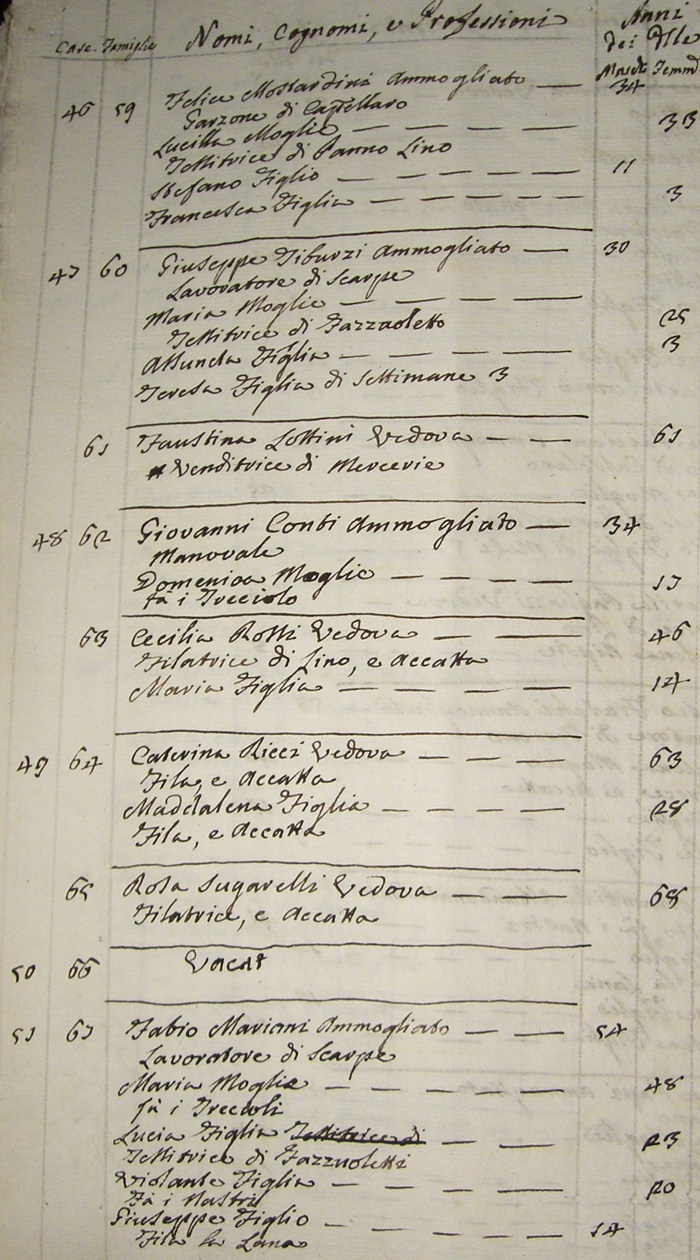 Case. Famiglie Nomi, Cognomi, e Professioni Anni
dei
Maschi Femm
46 59 Felice Mostardini Ammogliato — 34
Garzone di Cappellaro
Lucilla Moglie — — — — 33
Tessitrice di Panno Lino
Stefano Figlio — — — — — 11
Francesca Figlia — — — — — 3
47 60 Giuseppe Tiburzi Ammogliato — 30
Lavoratore di Scarpe
Maria Moglie — — — — 25
Tessitrice di Fazzoletto
Assunta Figlia — — — — — 3
Teresa Figlia di Settimane 3
61 Faustina Lottini Vedova — — 61
Venditrice di Mercerie
48 62 Giovanni Conti Ammogliato — 34
Manovale
Domenica Moglie — — — — 17
fà i Trecciolo
63 Cecilia Rossi Vedova — — 46
Filatrice di Lino, e Accatta
Maria Figlia — — — — 14
49 64 Caterina Ricci Vedova — — — 63
Fila, e Accatta
Maddalena Figlia — — — — 28
Fila, e Accatta
65 Rosa Sugarelli Vedova — — — 68
Filatrice, e Accatta
50 66 Vacat
51 67 Fabio Mariani Ammogliato — — — 54
Lavoratore di Scarpe
Maria Moglie — — — — — 48
fà i Treccioli
Lucia Figlia Tessitrice di — — — 23
Tessitrice di Fazzuoletti
Violante Figlia — — — — — 20
Fà i Nastri
Giuseppe Figlio — — — — — 14
Fila la Lana